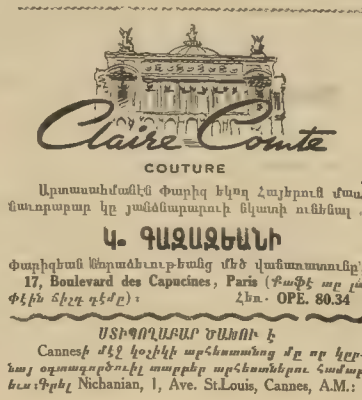 Claire Comte
COUTURE
Արտասահմանէն Փարիզ եկող Հայերուն մաս
նաւորաբար կը յանձնարարուի նկատի ունենալ
Կ. ԳԱԶԱԶԵԱՆԻ
Փարիզեան նորաձեւութեանց մեծ վաճառատունը՝
17, Boulevard des Capucines, Paris (Քաֆէ տը լա
Փէին ճիշդ դէմը)։ Հեռ. OPE. 80.34
ՍՏԻՊՈՂԱԲԱՐ ԾԱԽՈՒ Է
Cannesի մէջ կօշիկի արհեստանոց մը որ կըր-
նայ օգտագործուիլ տարբեր արհեստներու համար
եւս։ Գրել Nichanian, 1, Ave. St.Louis, Cannes, A.M.: